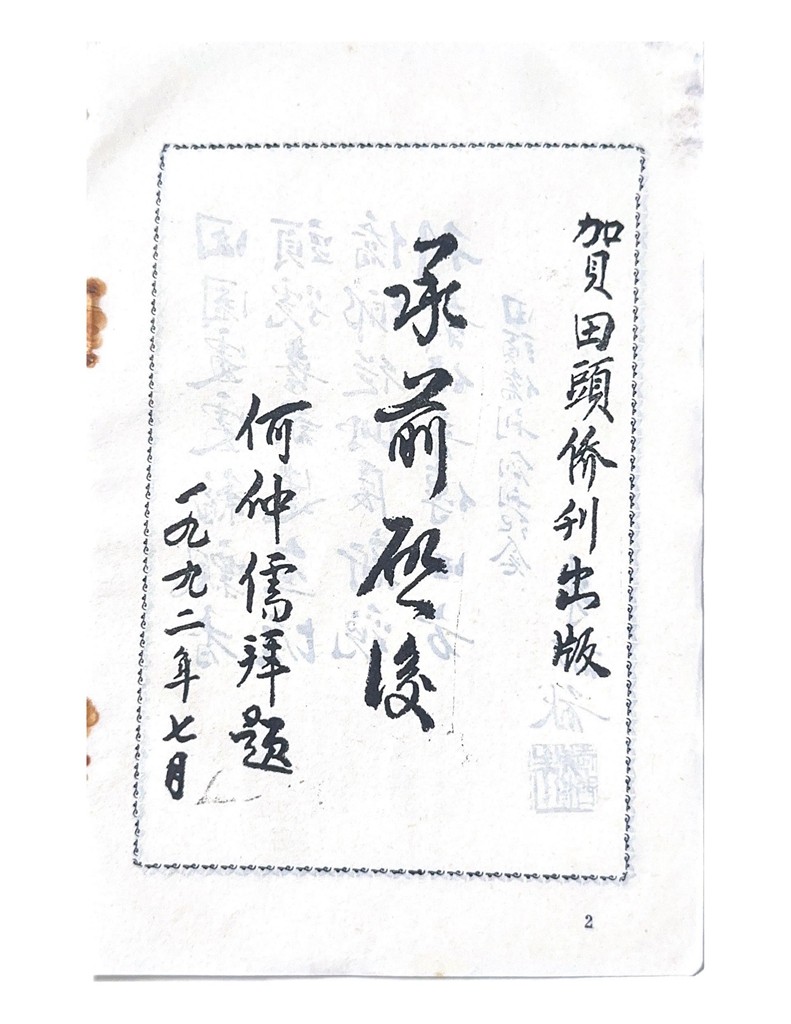 賀田頭侨刊出版
承前启後
何仲儒拜题
一九九二年七月
2